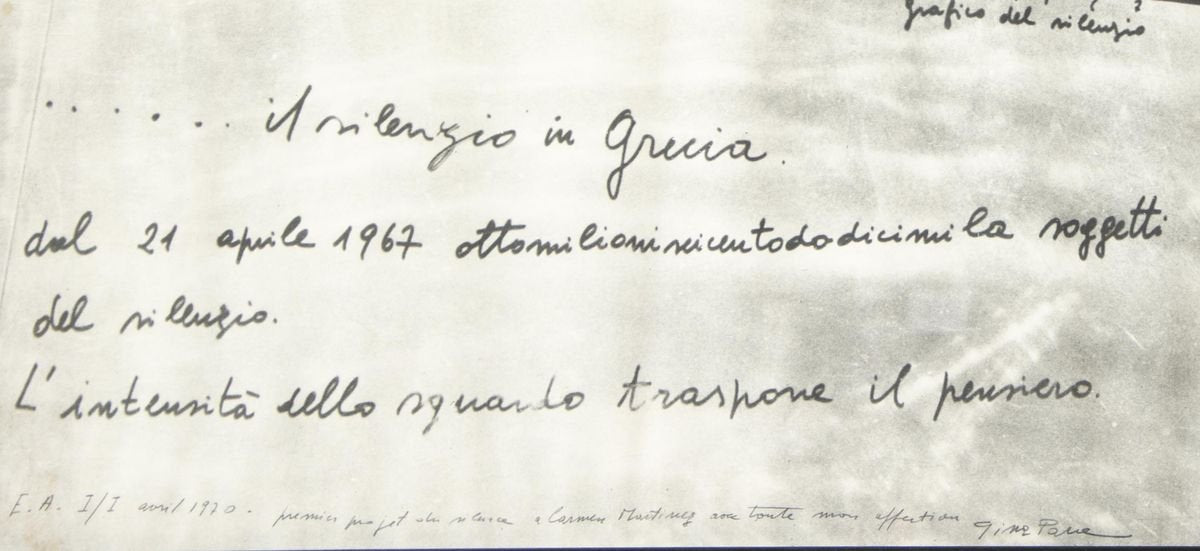 grafico del silenzio
. . . . . . . il silenzio in Grecia.
dal 21 aprile 1967 ottomilioniseicentododicimila soggetti
del silenzio.
L'intensità dello sguardo traspone il pensiero.
E.A. I/I avril 1970. premier projet du silence a Carmen Martinez avec toute mon affection Gina Pane